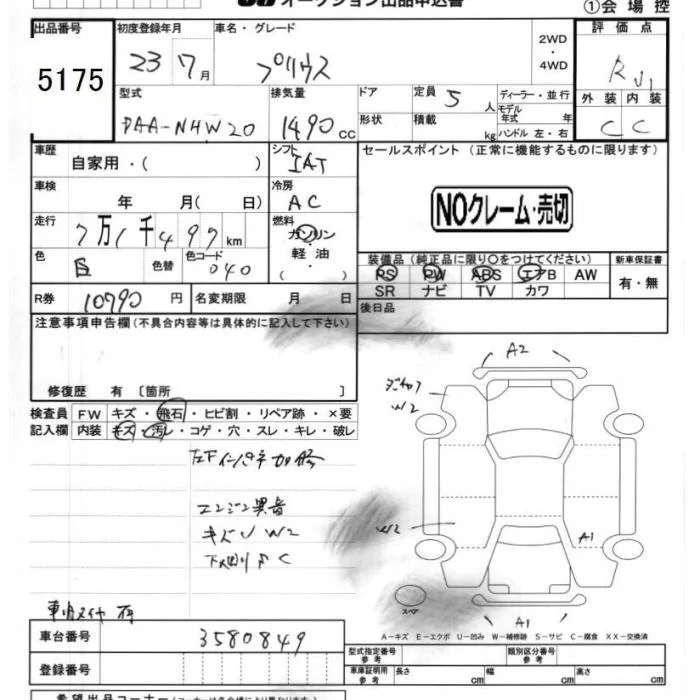 オークション出品申込書 ①会場控
出品番号 初度登録年月 車名・グレード 2WD・4WD 評価点
5175 23 7月 プリウス R
型式 排気量 ドア 定員 5人 ディーラー・並行 外装 内装
DAA-NHW20 1490cc 形状 積載 kg モデル年式 年 ハンドル 左・右 C C
車歴 自家用・( ) シフト IAT セールスポイント (正常に機能するものに限ります)
車検 年 月( 日) 冷房 AC NOクレーム・売切
走行 7万1千497km 燃料 ガソリン・軽油・( )
色 色替 色コード 040 装備品(純正品に限り○をつけてください) 新車保証書
PS PW ABS エアB AW 有・無
SR ナビ TV カワ
R券 10790円 名変期限 月 日 後日品
注意事項申告欄(不具合内容等は具体的に記入して下さい)
A2
W2
修復歴 有〔箇所 〕
検査員 FW キズ・飛石・ヒビ割・リペア跡・×要
記入欄 内装 キズ・汚レ・コゲ・穴・スレ・キレ・破レ
エンジン異音
キズU W2 W2 A1
下回りSC
スペア
A1
A-キズ E-エクボ U-凹み W-補修跡 S-サビ C-腐食 XX-交換済
車台番号 3580849 型式指定番号 参考 類別区分番号 参考
登録番号 車庫証明用 参考 長さ cm 幅 cm 高さ cm
希望出品コーナー